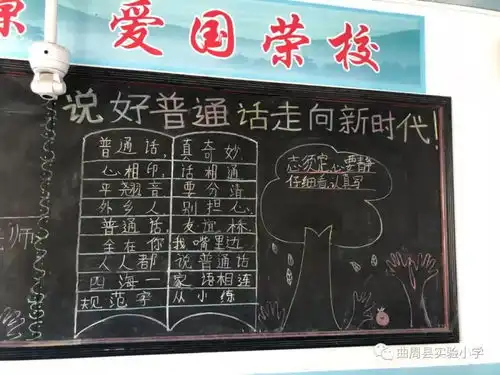 爱国荣校
说好普通话走向新时代！
普通话，真奇妙
心相印，话相通
平翘音 要分清
外乡人 别担心
普通话 友谊桥
全在你我嘴里边
人人都 说普通话
四海一家 语相连
规范字 从小练
志须定，心要静
仔细看，认真写
老师
曲周县实验小学